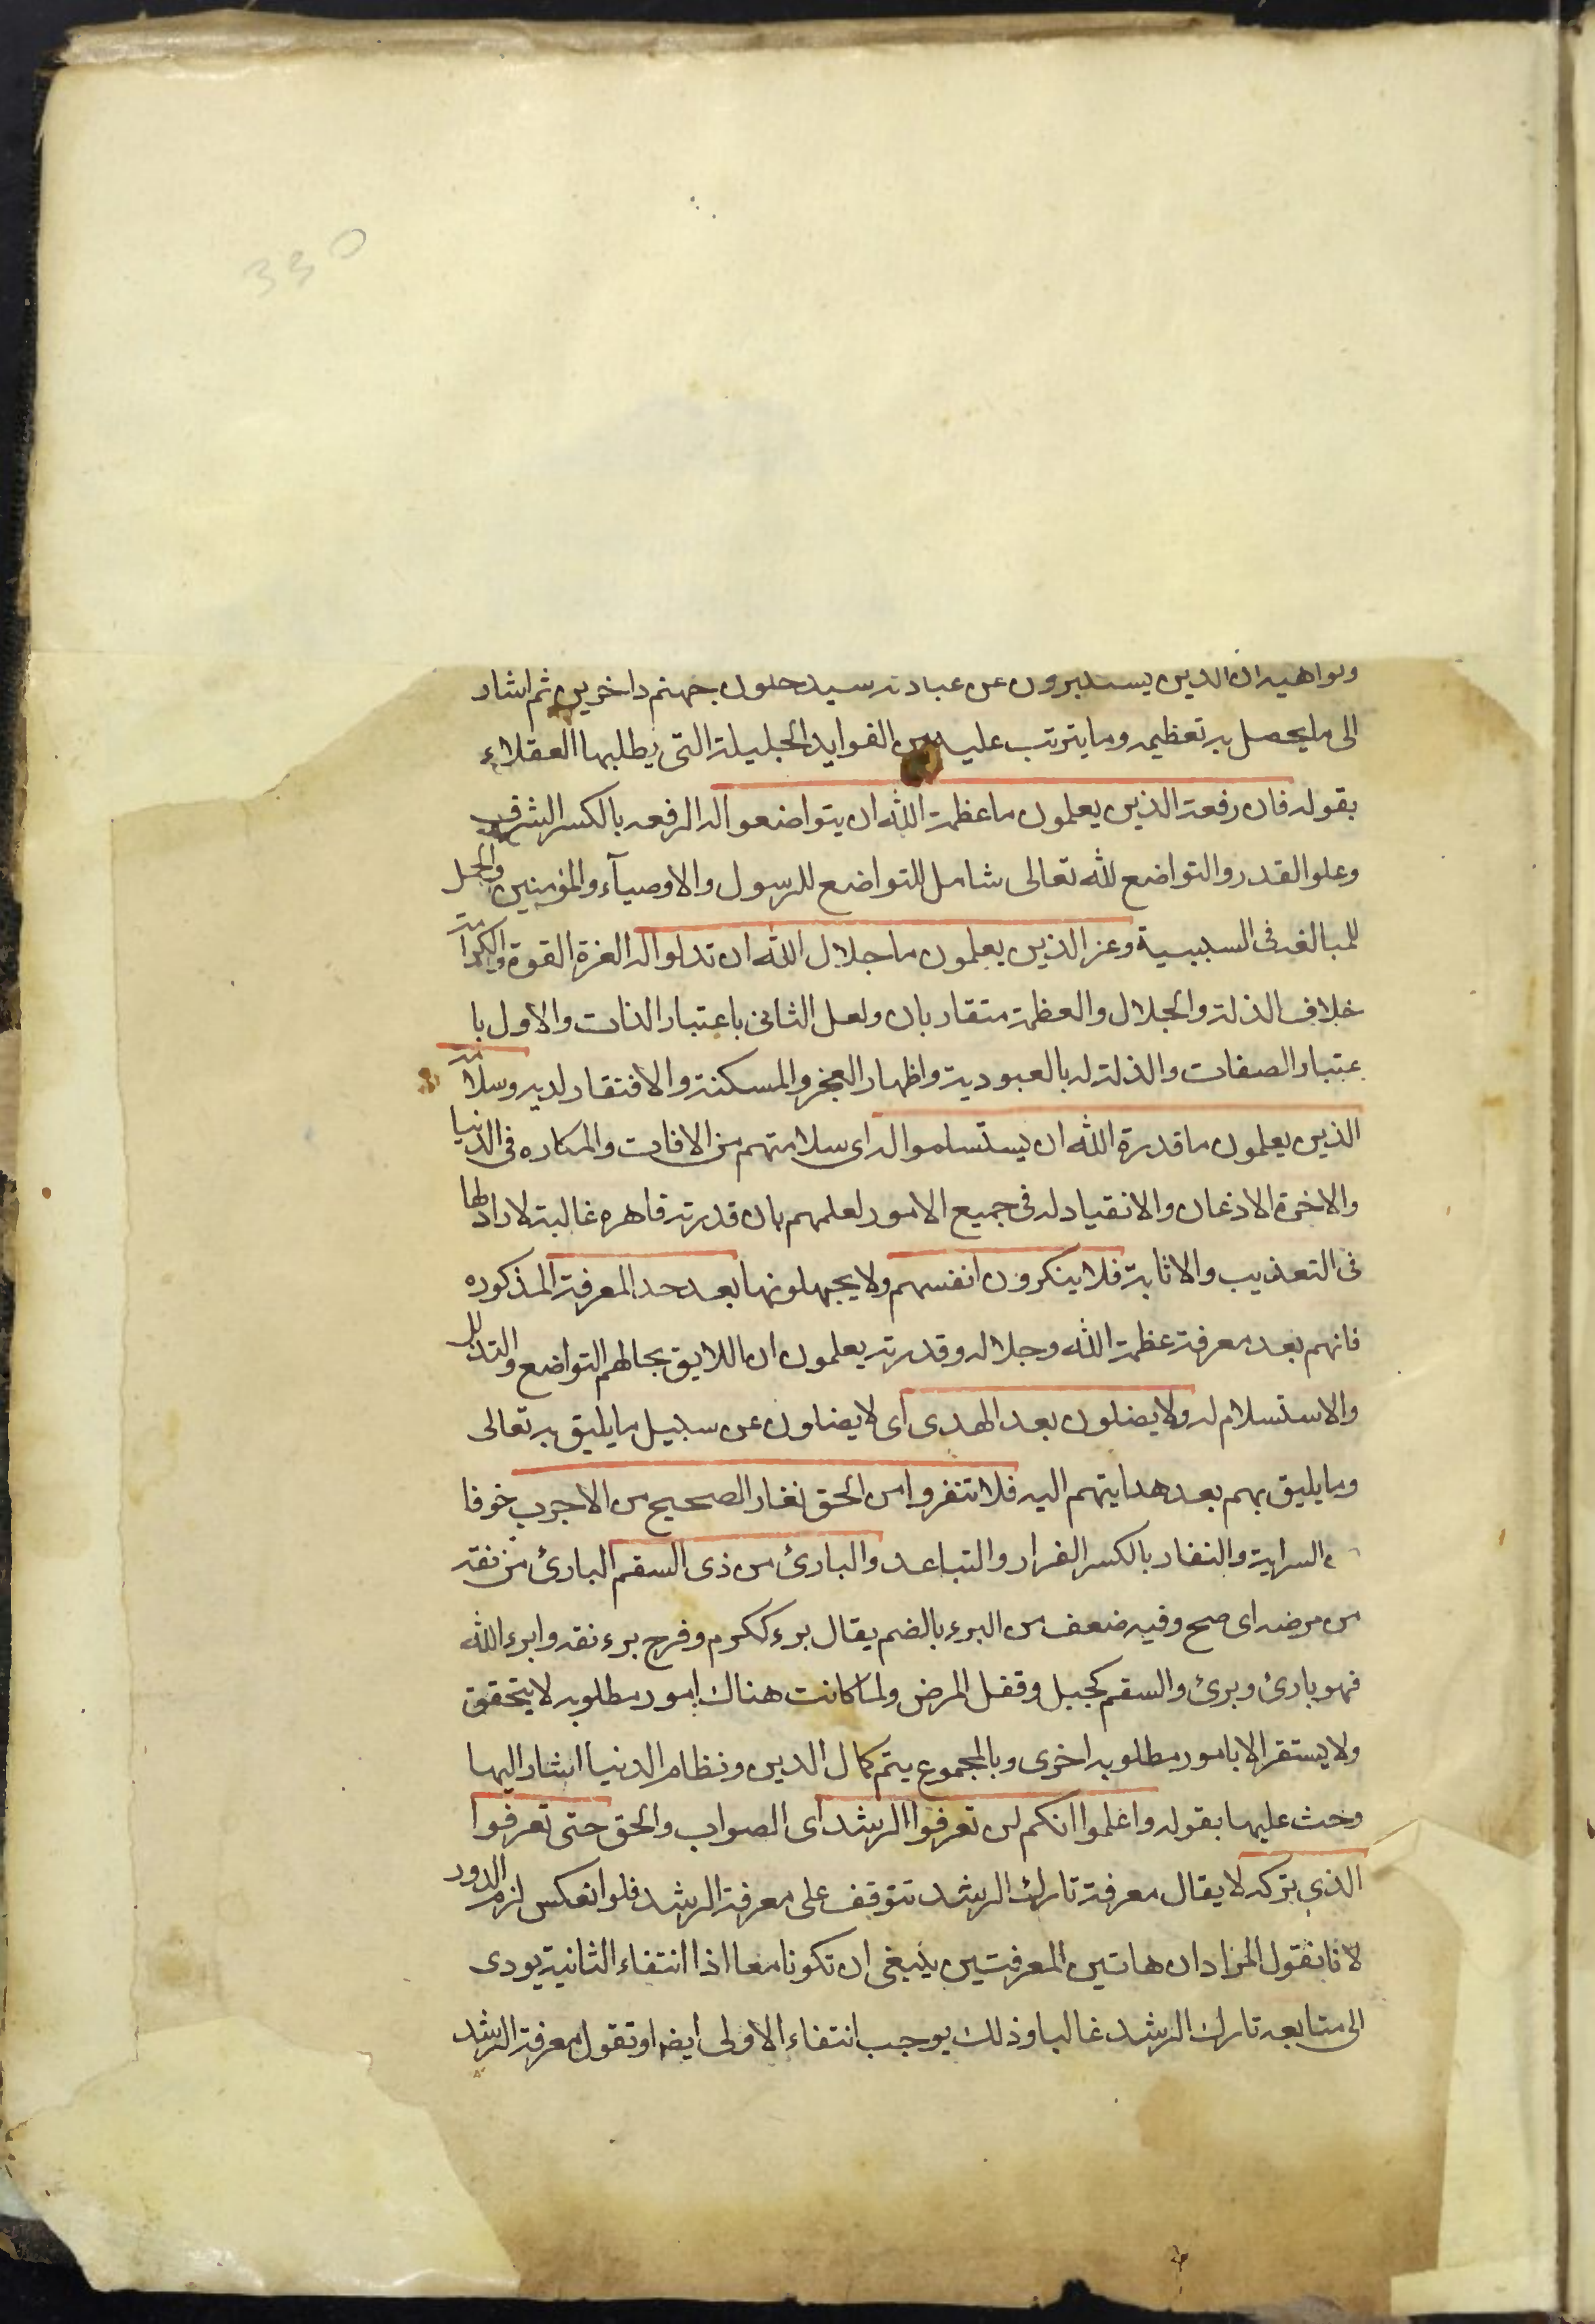 330
ونواهيه ان الذين يستكبرون عن عبادته سيدخلون جهنم داخرين ثم اشار
الى ما يحصل به تعظيمه وما يترتب عليه من الفوايد الجليلة التى يطلبها العقلاء
بقوله فان رفعة الذين يعلمون ما عظمة الله ان يتواضعوا له الرفعه بالكسر الشرف
وعلو القدر والتواضع لله تعالى شامل للتواضع للرسول والاوصيآء والمؤمنين والحمل
للمبالغه فى السببية وعز الذين يعلمون ما جلال الله ان تذلوا له العزة القوة والكرامة
خلاف الذلة والجلال والعظمة متقاربان ولعل الثانى باعتبار الذات والاول با
عتبار الصفات والذلة له بالعبودية واظهار العجز والمسكنة والافتقار لديه وسلامة
الذين يعلمون ما قدرة الله ان يستسلموا له اى سلامتهم من الافات والمكاره فى الدنيا
والاخرة الاذعان والانقياد له فى جميع الامور لعلمهم بان قدرته قاهره غالبة لا راد لها
فى التعذيب والاثابة فلا ينكرون انفسهم ولا يجهلونها بعد حد المعرفة المذكوره
فانهم بعد معرفة عظمة الله وجلاله وقدرته يعلمون ان اللايق بحالهم التواضع والتذلل
والاستسلام له ولا يضلون بعد الهدى اى لا يضلون عن سبيل ما يليق به تعالى
وما يليق بهم بعد هدايتهم اليه فلا تنفروا من الحق نفار الصحيح من الاجرب خوفا
السراية والنفار بالكسر الفرار والتباعد والبارئ من ذى السقم البارئ من نقه
من مرضه اى صح وفيه ضعف من البرء بالضم يقال برء ككرم وفرح برء نقه وابرءه الله
فهو بارئ وبرئ والسقم كجبل وقفل المرض ولما كانت هناك امور مطلوبه لا يتحقق
ولا يستقر الا بامور مطلوبه اخرى وبالمجموع يتم كمال الدين ونظام الدنيا اشار اليها
وحث عليها بقوله واعلموا انكم لن تعرفوا الرشد اى الصواب والحق حتى تعرفوا
الذى تركه لا يقال معرفة تارك الرشد تتوقف على معرفة الرشد فلو انعكس لزم الدور
لانا نقول المراد ان هاتين المعرفتين ينبغى ان تكونا معا اذا انتفاء الثانية يودى
الى متابعه تارك الرشد غالبا وذلك يوجب انتفاء الاولى ايضا او تقول معرفة الرشد